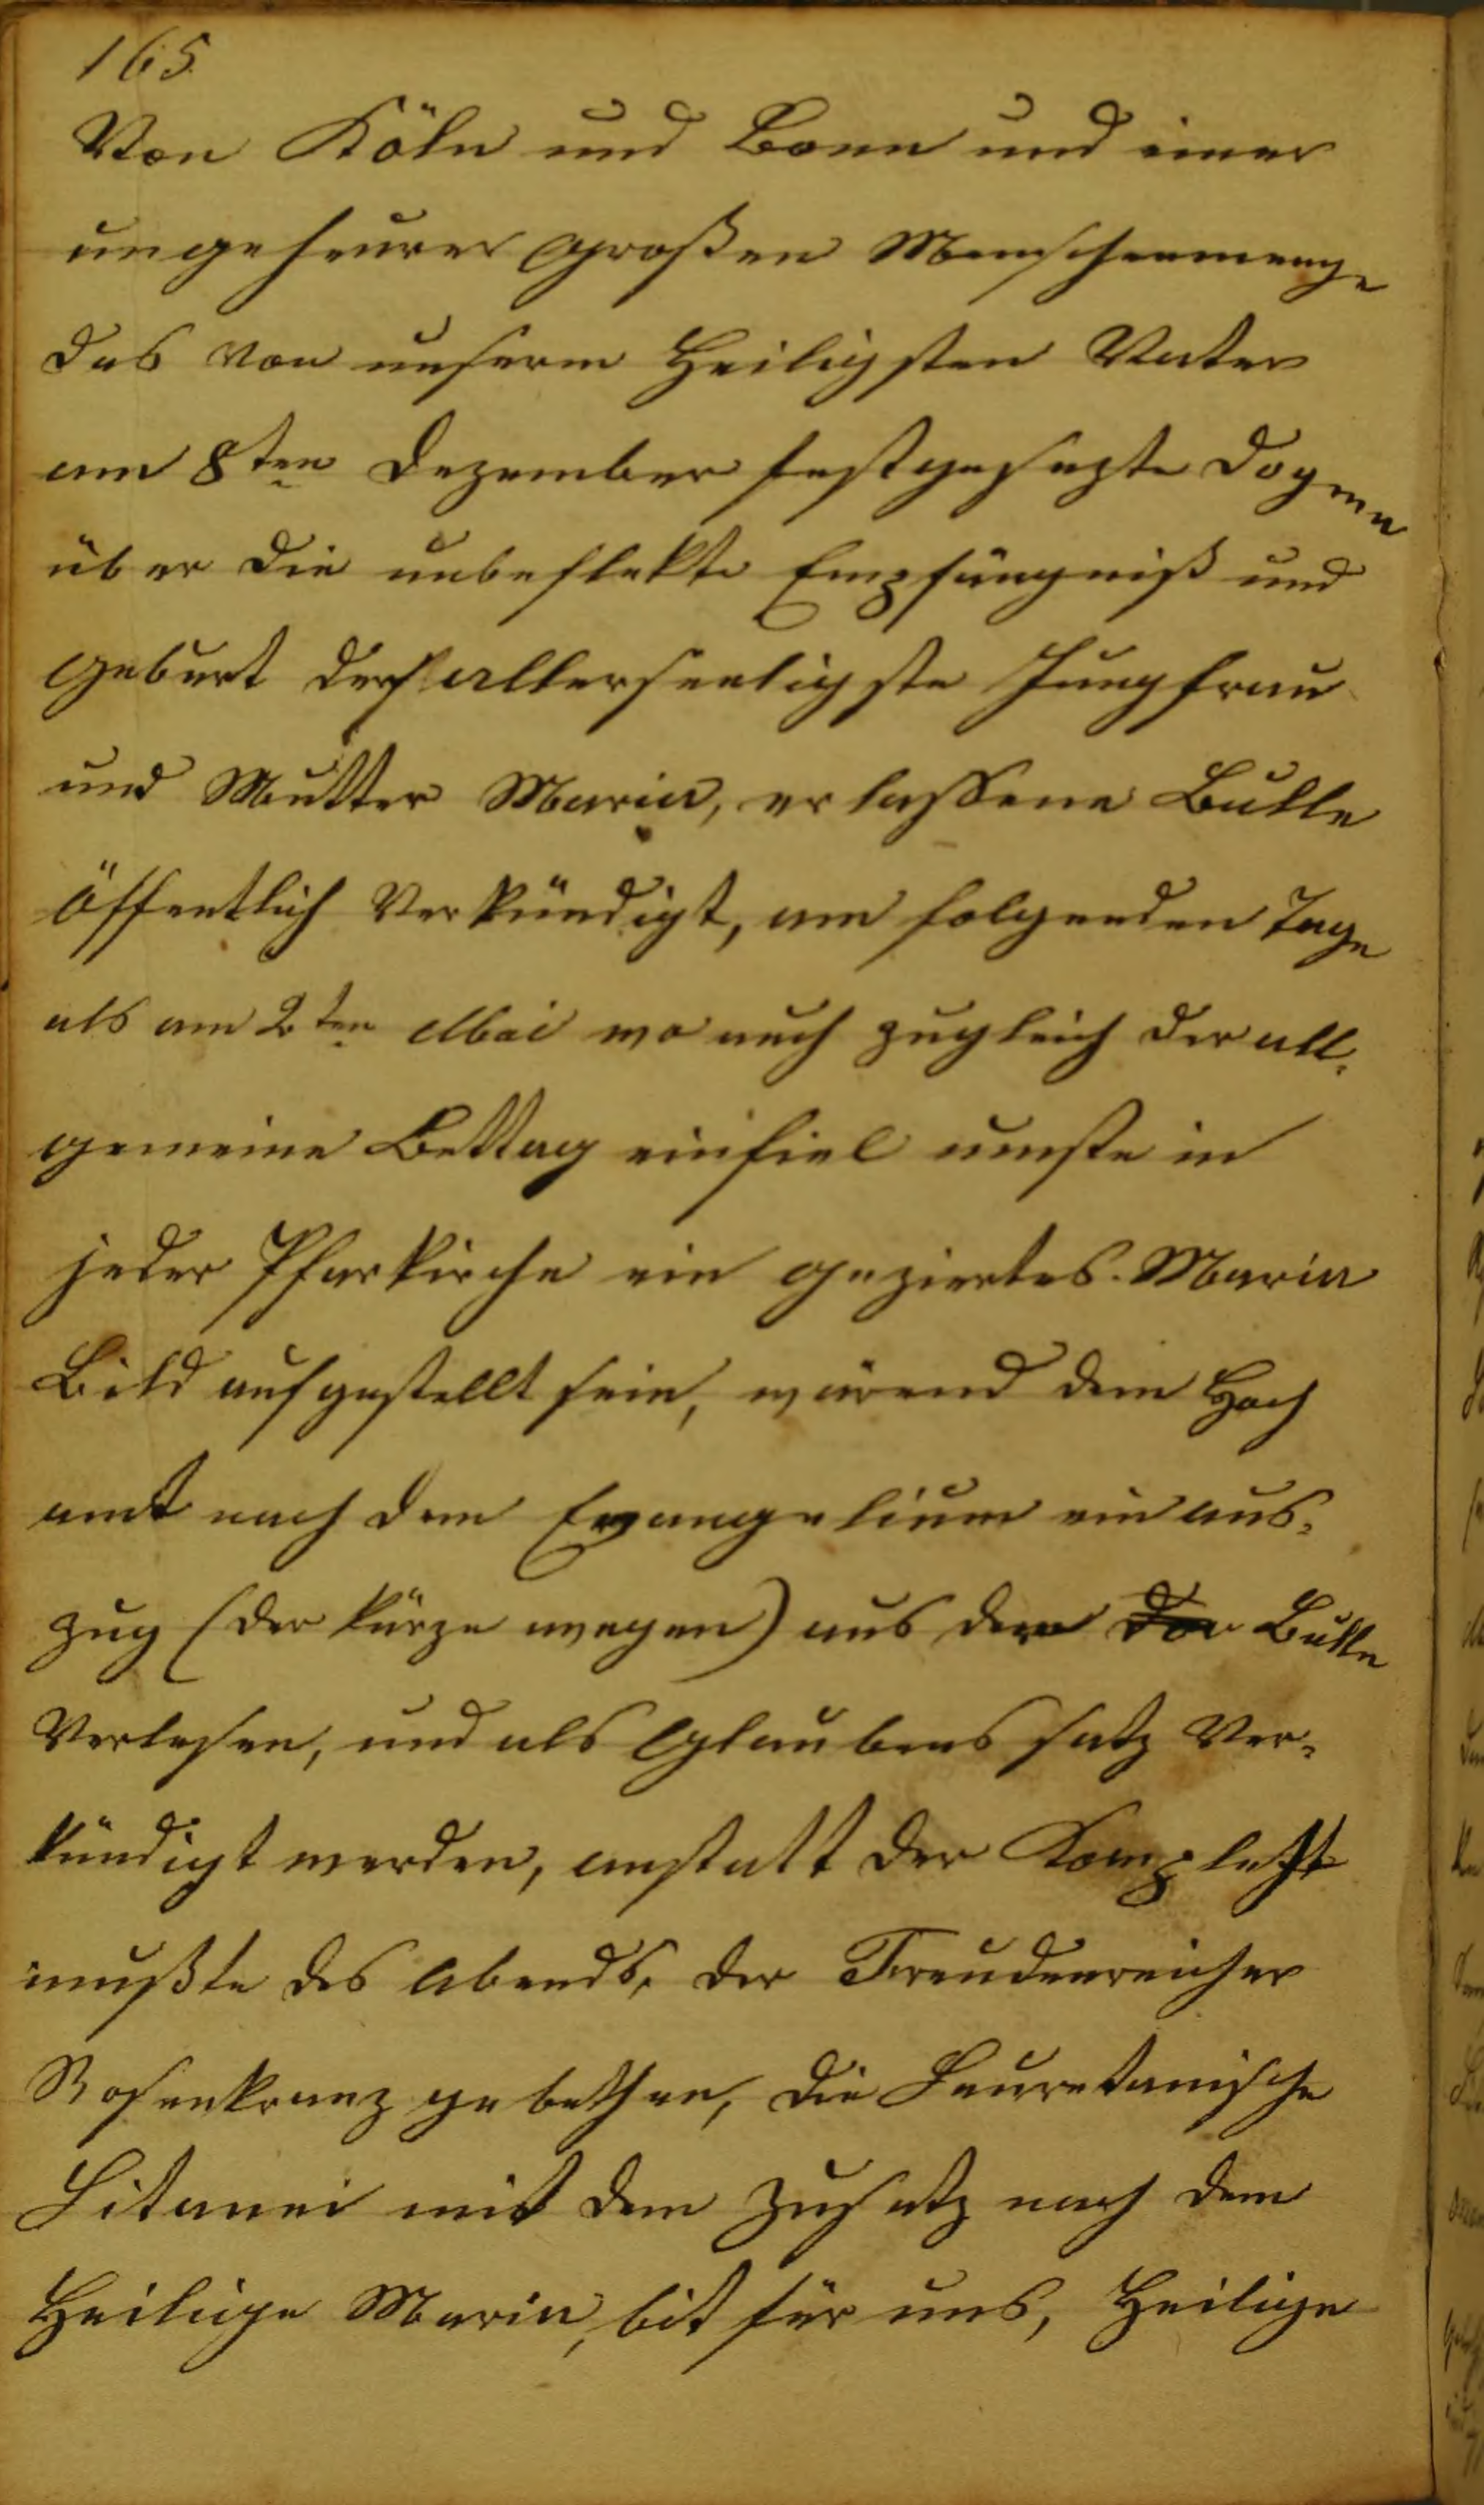 165
Von Köln und Bonn und einer
ungeheurer großen Menschenmenge
das von unserm Heiligsten Vater
am 8ten Dezember festgesezte Dogma
über die unbeflekte Empfängniß und
geburt der allerseeligste Jungfrau
und Mutter Maria, erlassene Bulle
öffentlich Verkündigt, am folgenden Tage
als am 2ten Mai wo auch zugleich der all,
gemeine Bettag einfiel muste in
jeder Pfarkirche ein geziertes Maria
Bild aufgestellt sein, wärend dem Hoch
amt nach dem Evangelium ein aus,
zug (der kürze wegen) aus der Bulle
Verlesen, und als Glaubens satz Ver,
kündigt werden, anstatt der Komplett
mußte des abends, der Freudenreicher
Rosenkranz gebethen, die Lauretanische
Litanei mit dem zusatz nach dem
Heilige Maria, bit für uns, Heilige